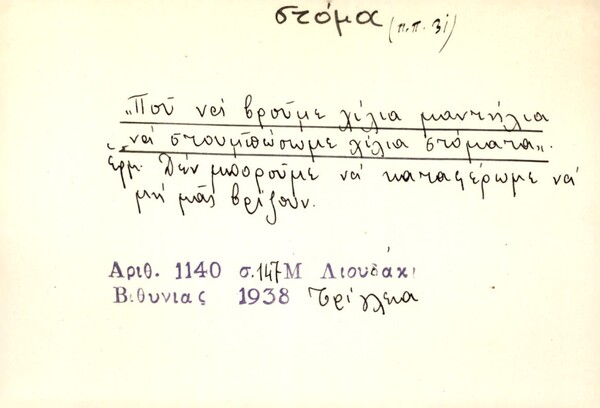 στόμα (π.π. 31)
„Ποῦ νά βροῦμε χίλια μαντήλια
„νά στουμπώσωμε χίλια στόματα".
Ἑρμ. Δέν μποροῦμε νά καταφέρωμε νά
μή μᾶς βρίζουν.
Αριθ. 1140 σ.147 Μ Λιουδάκι
Βιθυνιας 1938 Τρίγλεια